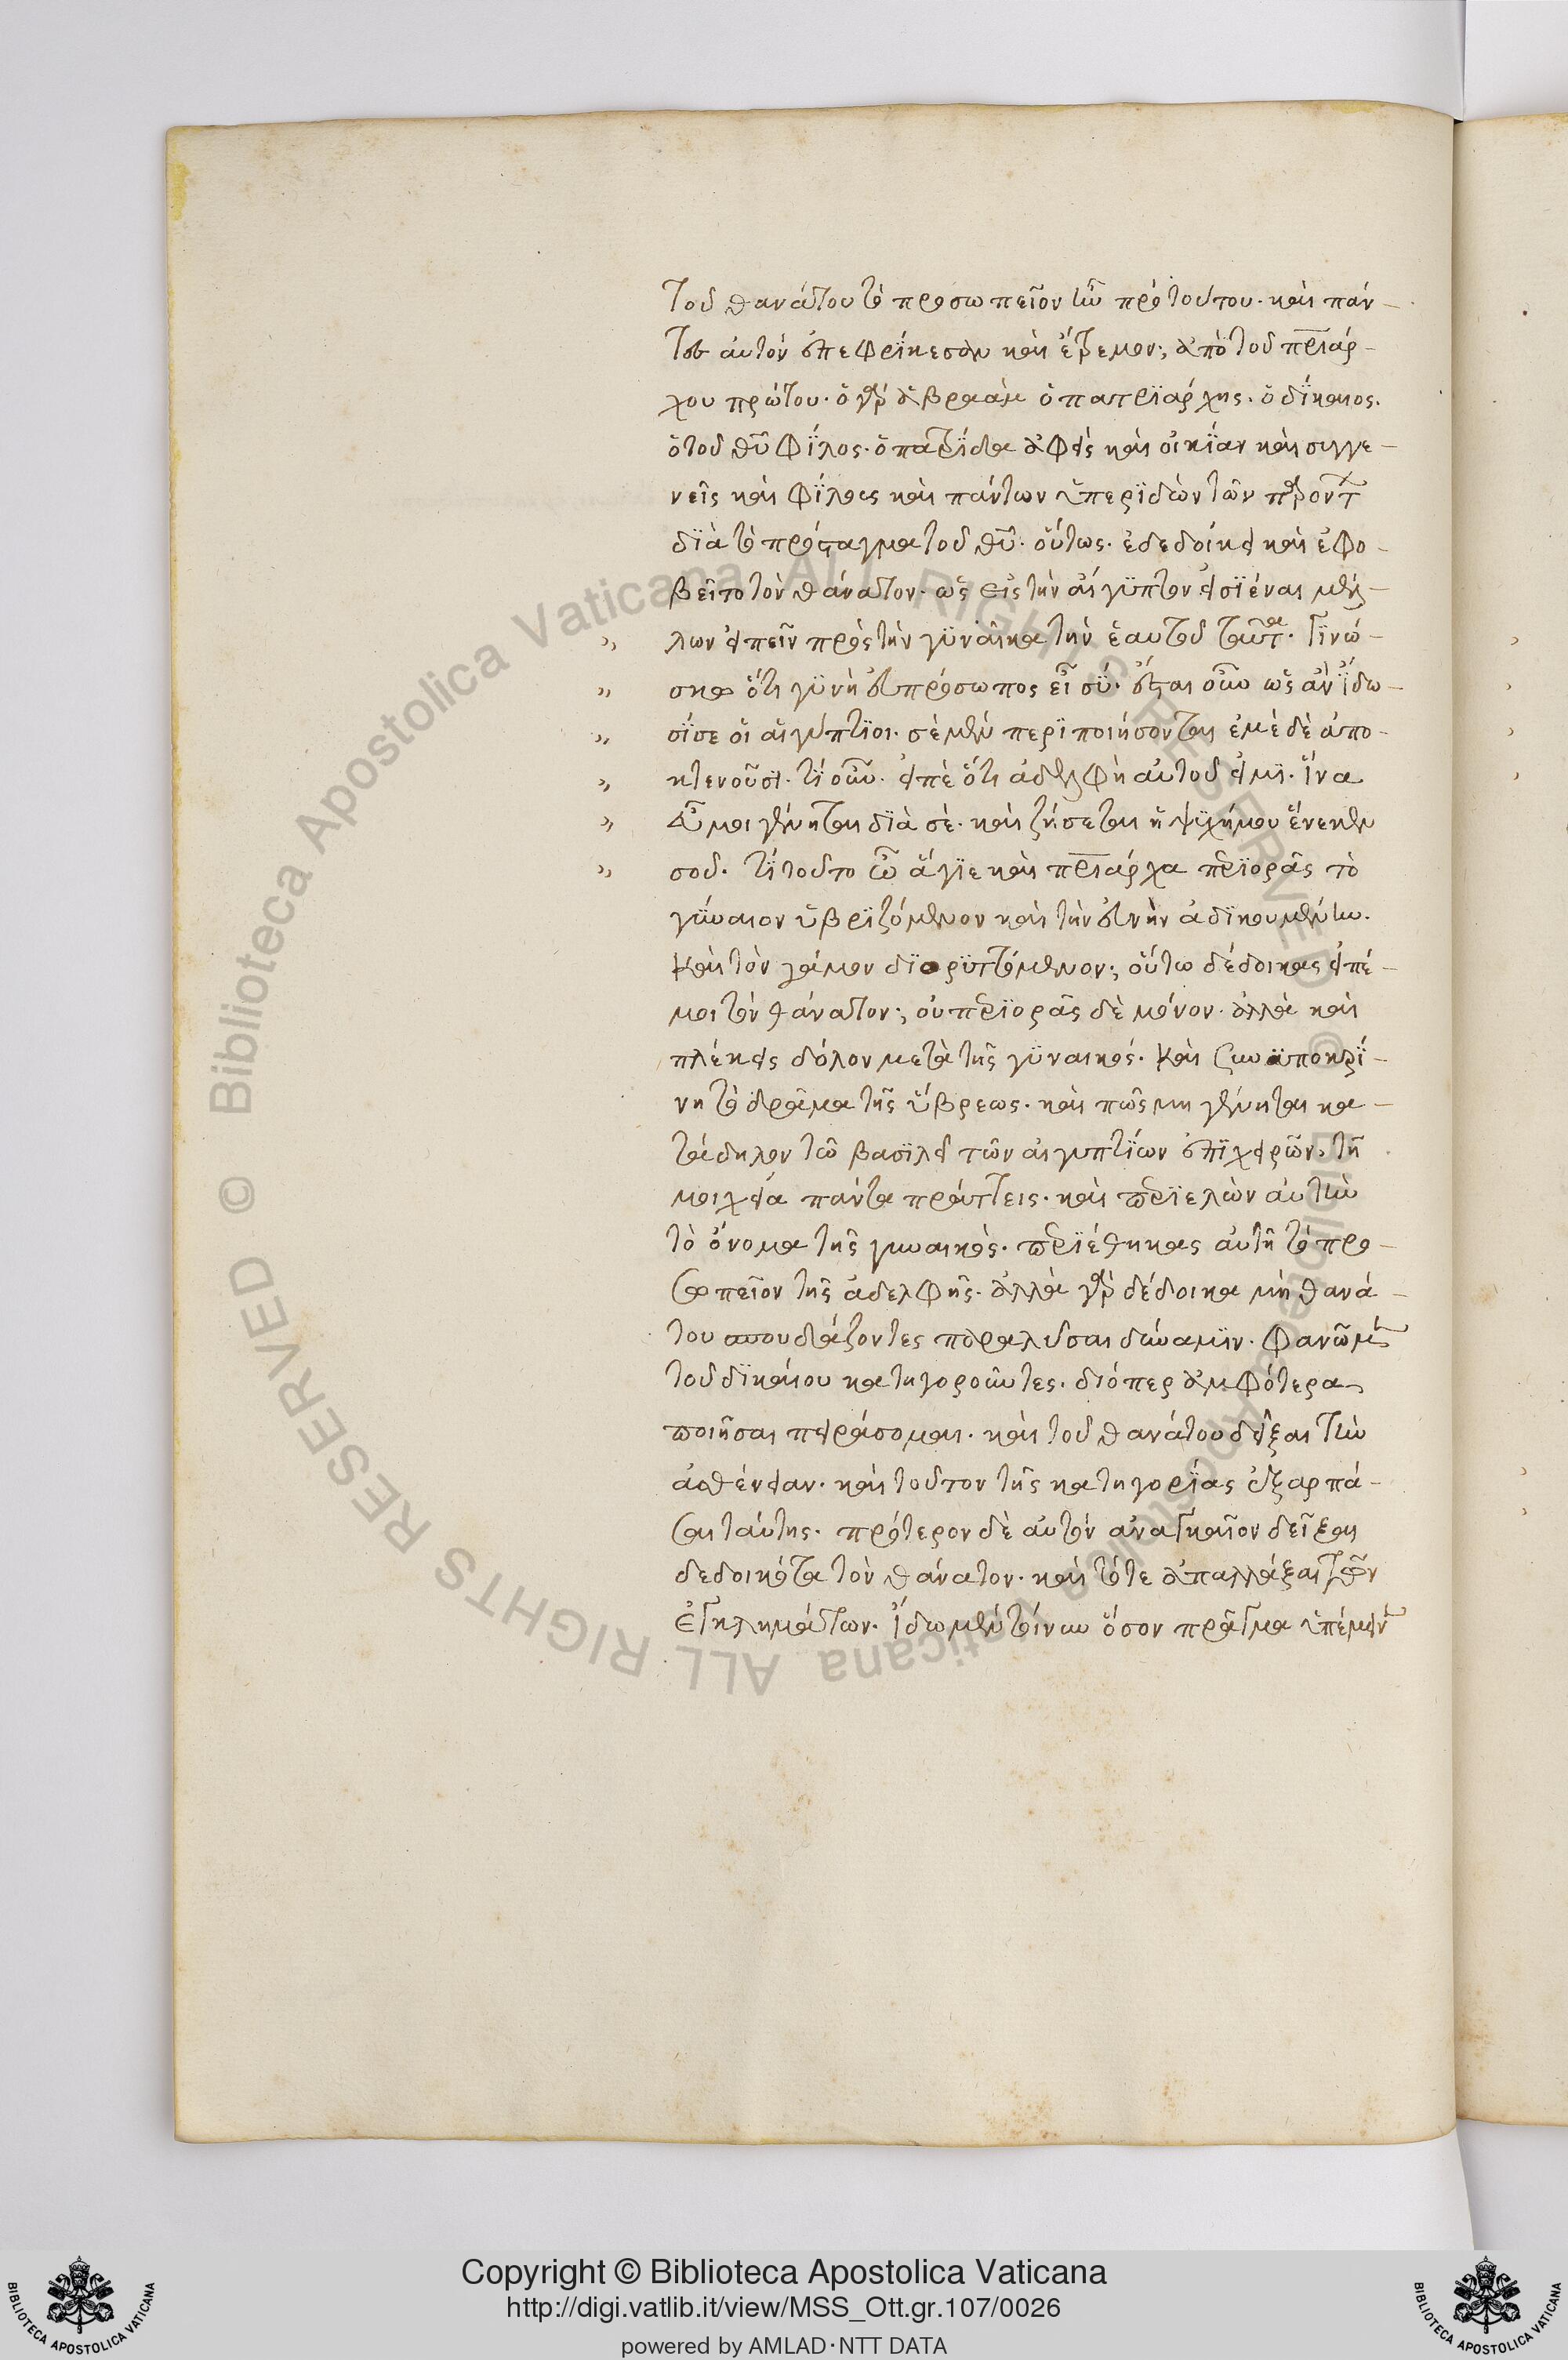 τοῦ θανάτου τὸ προσωπεῖον ἦν πρὸ τούτου· καὶ πάν–
τες αὐτὸν ἐπεφρίκεσαν καὶ ἔτρεμον; ἀπὸ τοῦ πριάρ–
χου πρώτου· ὁ γὰρ ἀβραὰμ ὁ πατριάρχης· ὁ δίκαιος·
ὁ τοῦ θῦ φίλος· ὁ πατρίδα ἀφεὶς καὶ οἰκίαν καὶ συγγε–
νεῖς καὶ φίλους καὶ πάντων ὑπεριδὼν τῶν παρόντ
διὰ τὸ πρόσταγμα τοῦ θῦ· οὕτως· ἐδεδοίκει καὶ ἐφο–
βεῖτο τὸν θάνατον· ὡς εἰς τὴν αἴγϋπτον εἰσϊέναι μέλ–
λων εἰπεῖν πρὸς τὴν γϋναῖκα τὴν ἑαυτοῦ ταῦτα· Γινώ–
σκω ὅτι γϋνὴ εὐπρόσωπος εἶ σϋ· ἔσται οὖν ὡς ἂν ἴδω–
σί σε οἱ αἰγύπτϊοι· σὲ μὲν περιποιήσονται ἐμὲ δὲ ἀπο–
κτενοῦσι· τί οὖν· εἰπὲ ὅτι ἀδελφὴ αὐτοῦ εἰμϊ· ἵνα
εὖ μοι γένηται διὰ σὲ· καὶ ζήσεται ἡ ψϋχή μου ἕνεκεν
σοῦ· τί τοῦτο ὦ ἅγιε καὶ πριάρχα περϊορᾶς τὸ
γύναιον ὑβρϊζόμενον καὶ τὴν εὐνὴν ἀδϊκουμένην·
Καὶ τὸν γάμον διορϋττόμενον; οὕτω δέδοικας εἰπέ–
μοι τὸν θάνατον; οὐ περϊορᾶς δὲ μόνον· ἀλλὰ καὶ
πλέκεις δόλον μετὰ τῆς γϋναικός· Καὶ συνϋποκρϊ–
νη τὸ δρᾶμα τῆς ὕβρεως· καὶ πῶς μη γένηται κα–
τάδηλον τῶ βασϊλεῖ τῶν αἰγυπτίων ἐπϊχειρῶν, τῆ
μοιχεία πάντα πράττεις· καὶ περϊελὼν αὐτὴν
τὸ ὄνομα τῆς γυναικὸς· περϊέθηκας αὐτῆ τὸ προ–
σωπεῖον τῆς ἀδελφῆς· ἀλλὰ γὰρ δέδοικα μὴ θανά–
του σπουδάζοντες παραλύσαι δύναμϊν· φανῶμ
τοῦ δϊκαίου κατηγοροῦντες· διόπερ ἀμφότερα
ποιῆσαι πειράσομαι· καὶ τοῦ θανάτου δεῖξαι τὴν
ἀσθένειαν· καὶ τοῦτον τῆς κατηγορίας ἐξαρπά–
σαι ταύτης· πρότερον δὲ αὐτὸν ἀναγκαῖον δεῖξαι
δεδοικότα τὸν θάνατον· καὶ τότε ἀπαλλάξαι τῶν
ἐγκλημάτων· ἴδωμεν τοίνυν ὅσον πρᾶγμα ὑπέμειν
Copyright © Biblioteca Apostolica Vaticana
http://digi.vatlib.it/view/MSS_Ott.gr.107/0026
powered by AMLAD·NTT DATA